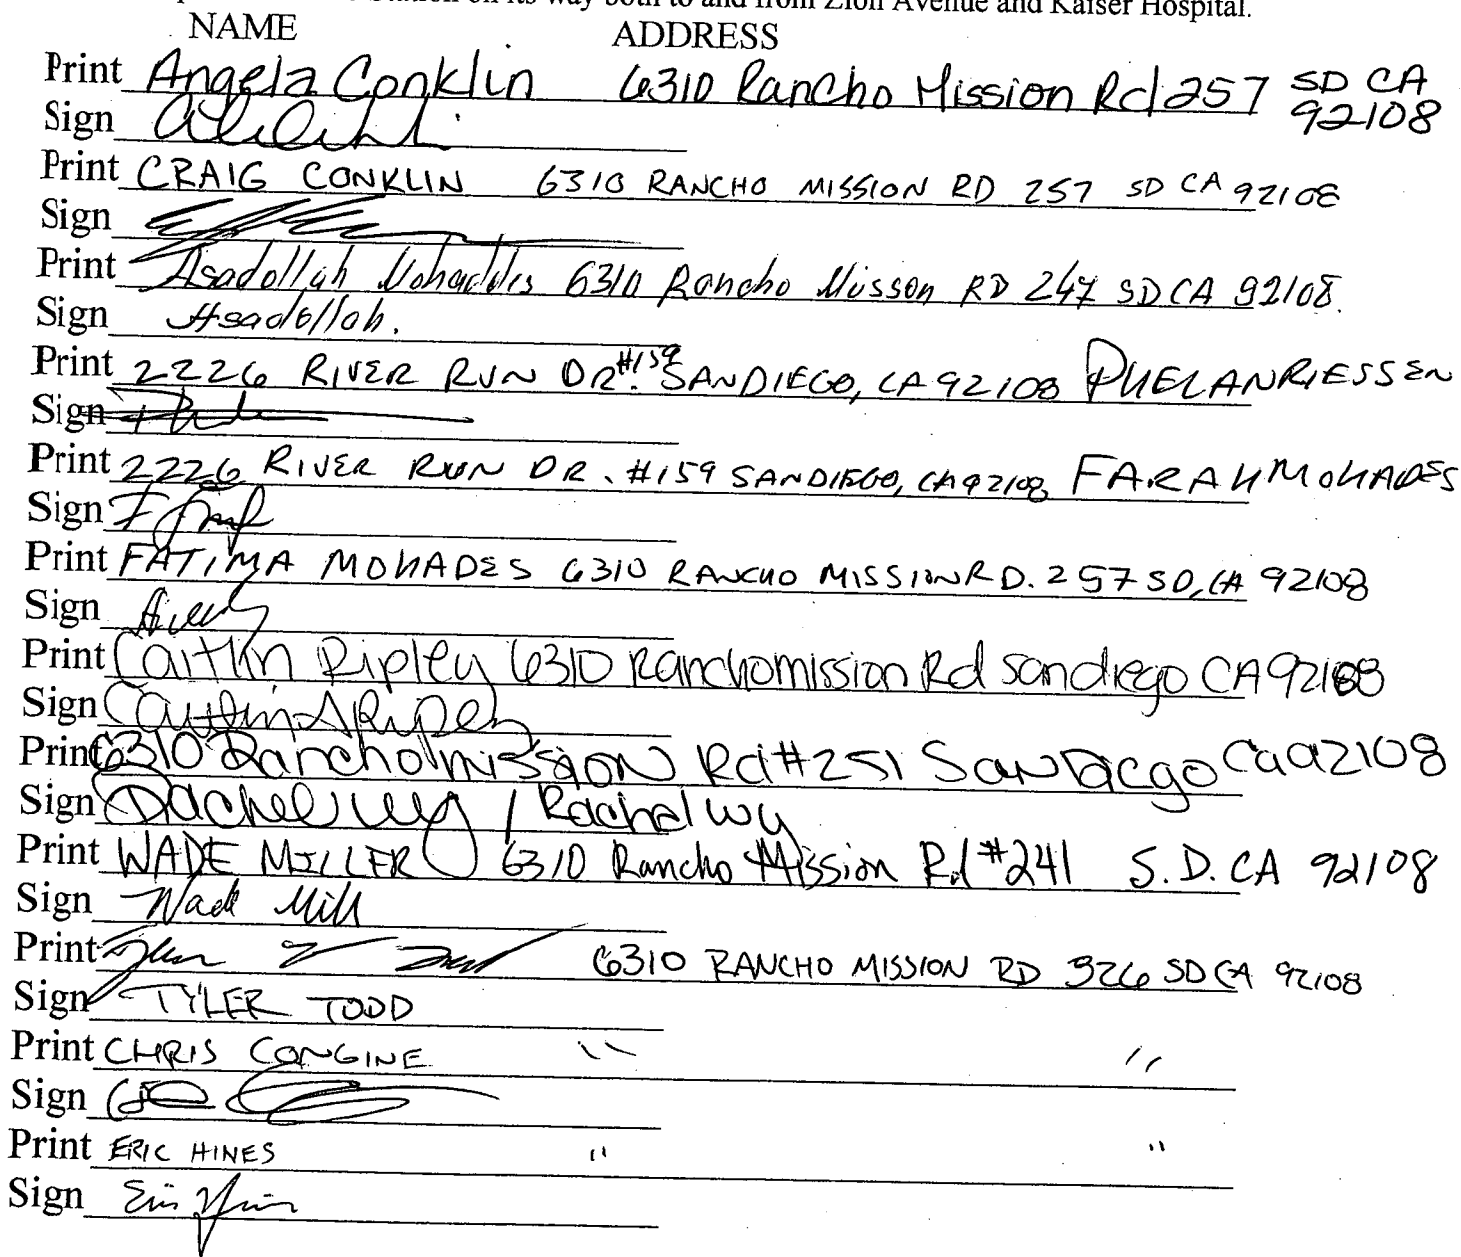 on its way both to and from Zion Avenue and Kaiser Hospital.
NAME ADDRESS
Print Angela Conklin 6310 Rancho Mission Rd 257 SD CA 92108
Sign
Print CRAIG CONKLIN 6310 RANCHO MISSION RD 257 SD CA 92108
Sign
Print Asadollah Mohaddes 6310 Rancho Misson RD 247 SD CA 92108.
Sign Asadollah.
Print 2226 RIVER RUN DR. #159 SANDIEGO, CA 92108 PHELANRIESSEN
Sign
Print 2226 RIVER RUN DR. #159 SANDIEGO, CA 92108 FARAH MOHADES
Sign
Print FATIMA MOHADES 6310 RANCHO MISSION RD. 257 SD, CA 92108
Sign
Print Caitlin Ripley 6310 Ranchomission Rd san diego CA 92108
Sign Caitlin A Ripley
Print 6310 Rancho mission Rd #251 San Diego Ca 92108
Sign Rachel Wy / Rachel Wy
Print WADE MILLER 6310 Rancho Mission Rd #241 S.D. CA 92108
Sign Wade Mill
Print 6310 RANCHO MISSION RD 326 SD CA 92108
Sign TYLER TODD
Print CHRIS CONGINE " "
Sign
Print ERIC HINES " "
Sign Eric Hines